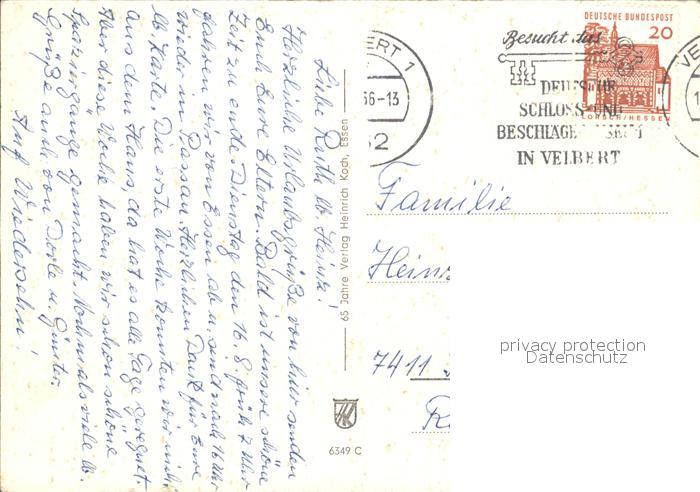 Liebe Ruth lb. Heinz!
Herzliche Urlaubsgrüße von hier senden
Euch Eure Eltern. Bald ist unsere schöne
Zeit zu ende. Dienstag den 16.8. früh 7 Uhr
fahren wir von Essen ab u. sind nach 16 Uhr
wieder in Passau. Herzlichen Dank für Eure
lb. Karte. Die erste Woche konnten wir nicht
aus dem Haus, da hat es alle Tage geregnet.
Aber diese Woche haben wir schon schöne
Spaziergänge gemacht. Nochmals viele lb.
Grüße auch von Dorle u. Günter.
Auf Wiedersehn!
65 Jahre Verlag Heinrich Koch, Essen
HK
6349 C
ERT 1
66-13
62
Besucht das
DEUTSCHE
SCHLOSS- UND
BESCHLÄGEMUSEUM
IN VELBERT
DEUTSCHE BUNDESPOST
20
LORSCH/HESSEN
VE
1
Familie
Heinz
7411
privacy protection
Datenschutz